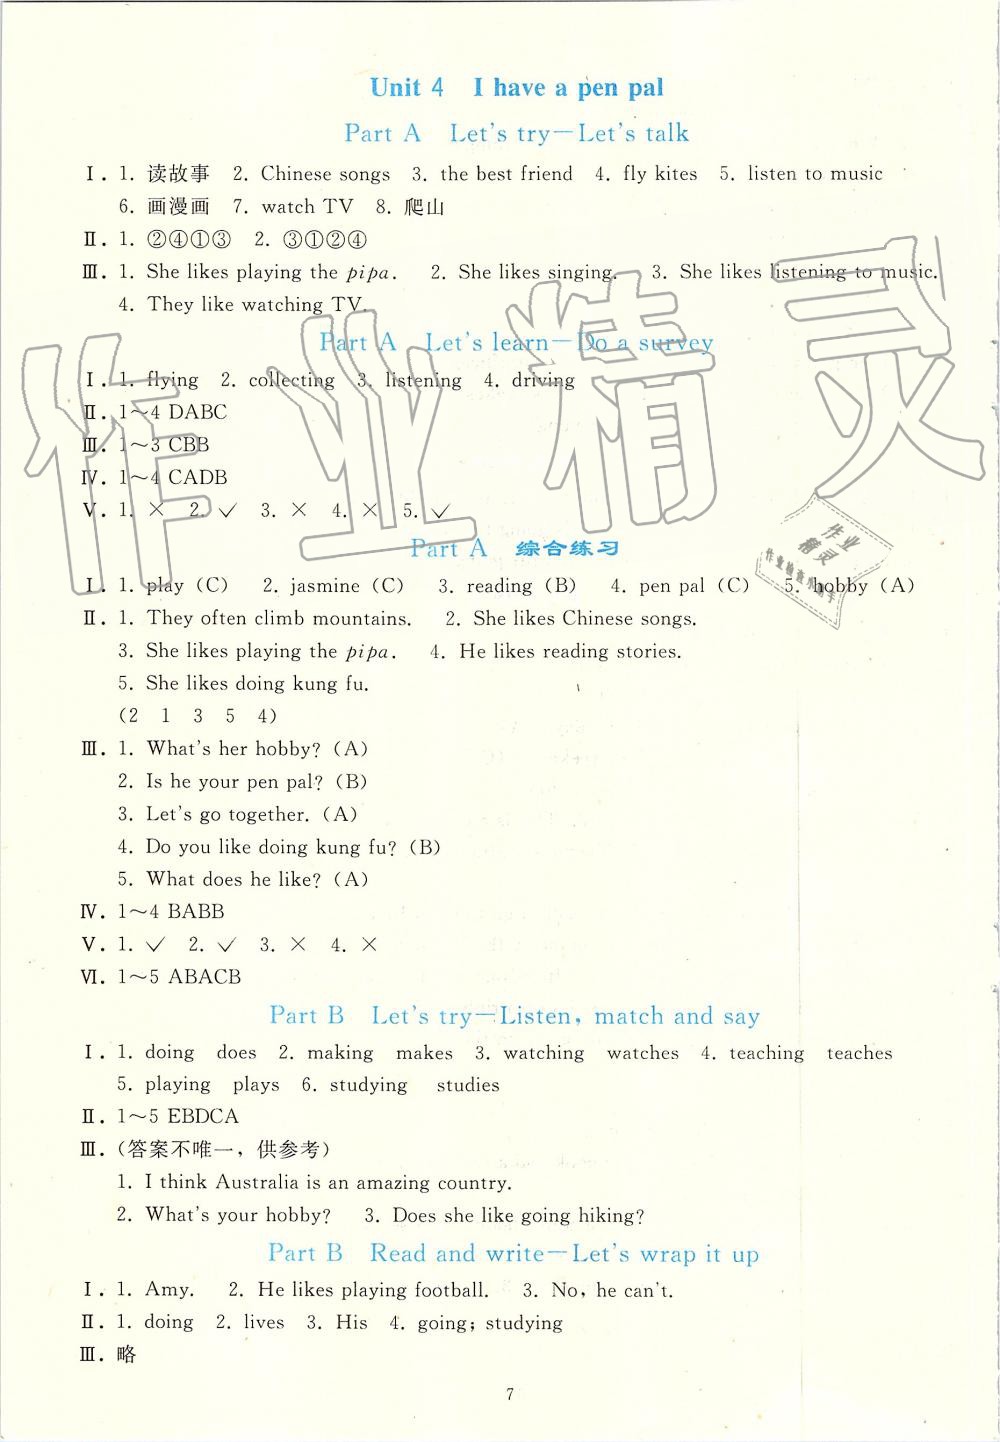 Unit 4 I have a pen pal
Part A Let's try—Let's talk
Ⅰ. 1. 读故事 2. Chinese songs 3. the best friend 4. fly kites 5. listen to music
6. 画漫画 7. watch TV 8. 爬山
Ⅱ. 1. ②④①③ 2. ③①②④
Ⅲ. 1. She likes playing the pipa. 2. She likes singing. 3. She likes listening to music.
4. They like watching TV.
Part A Let's learn—Do a survey
Ⅰ. 1. flying 2. collecting 3. listening 4. driving
Ⅱ. 1~4 DABC
Ⅲ. 1~3 CBB
Ⅳ. 1~4 CADB
Ⅴ. 1. × 2. ✓ 3. × 4. × 5. ✓
Part A 综合练习
Ⅰ. 1. play (C) 2. jasmine (C) 3. reading (B) 4. pen pal (C) 5. hobby (A)
Ⅱ. 1. They often climb mountains. 2. She likes Chinese songs.
3. She likes playing the pipa. 4. He likes reading stories.
5. She likes doing kung fu.
(2 1 3 5 4)
Ⅲ. 1. What's her hobby? (A)
2. Is he your pen pal? (B)
3. Let's go together. (A)
4. Do you like doing kung fu? (B)
5. What does he like? (A)
Ⅳ. 1~4 BABB
Ⅴ. 1. ✓ 2. ✓ 3. × 4. ×
Ⅵ. 1~5 ABACB
Part B Let's try—Listen, match and say
Ⅰ. 1. doing does 2. making makes 3. watching watches 4. teaching teaches
5. playing plays 6. studying studies
Ⅱ. 1~5 EBDCA
Ⅲ. (答案不唯一，供参考)
1. I think Australia is an amazing country.
2. What's your hobby? 3. Does she like going hiking?
Part B Read and write—Let's wrap it up
Ⅰ. 1. Amy. 2. He likes playing football. 3. No, he can't.
Ⅱ. 1. doing 2. lives 3. His 4. going; studying
Ⅲ. 略
7
作业精灵
作业
精灵